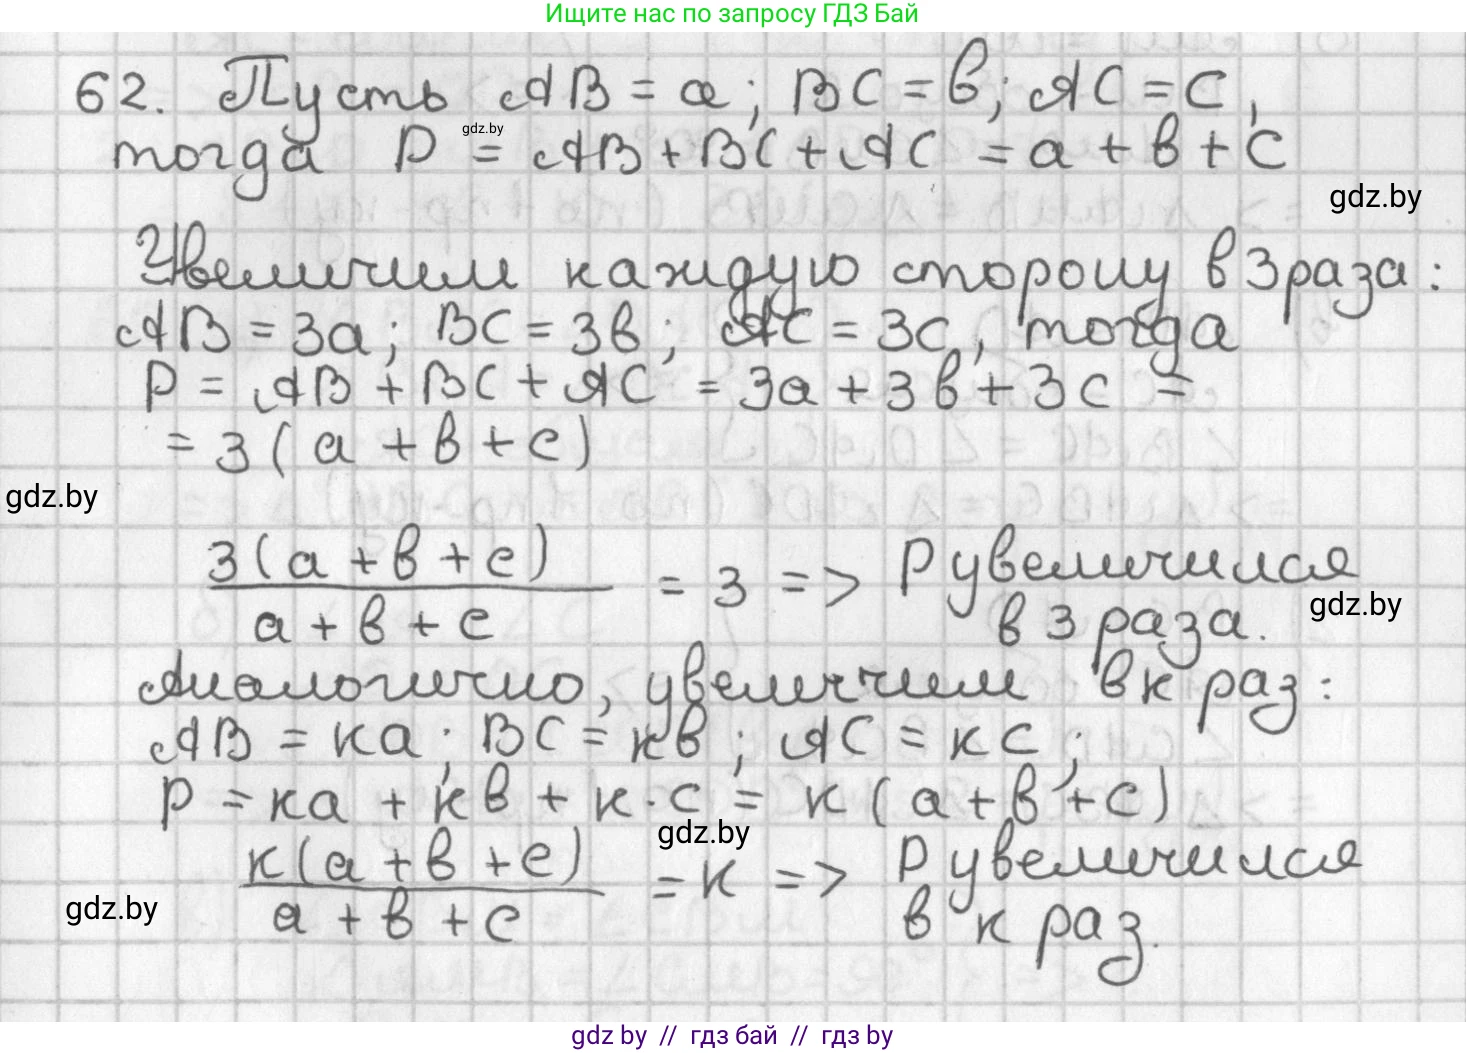 Ищите нас по запросу ГДЗ Бай
62. Пусть AB = a; BC = в; AC = c,
gdz.by
тогда P = AB + BC + AC = a + в + c
gdz.by
Увеличим каждую сторону в 3 раза:
AB = 3a; BC = 3в; AC = 3c, тогда
P = AB + BC + AC = 3a + 3в + 3c =
= 3(a + в + c)
gdz.by
3(a + в + c)
a + в + c
= 3 => P увеличился
в 3 раза.
gdz.by
Аналогично, увеличим в к раз:
AB = кa; BC = кв; AC = кc;
P = кa + кв + к·c = к(a + в + c)
gdz.by
к(a + в + c)
a + в + c
= к => P увеличился
в к раз.
gdz.by
gdz.by // гдз бай // гдз.by